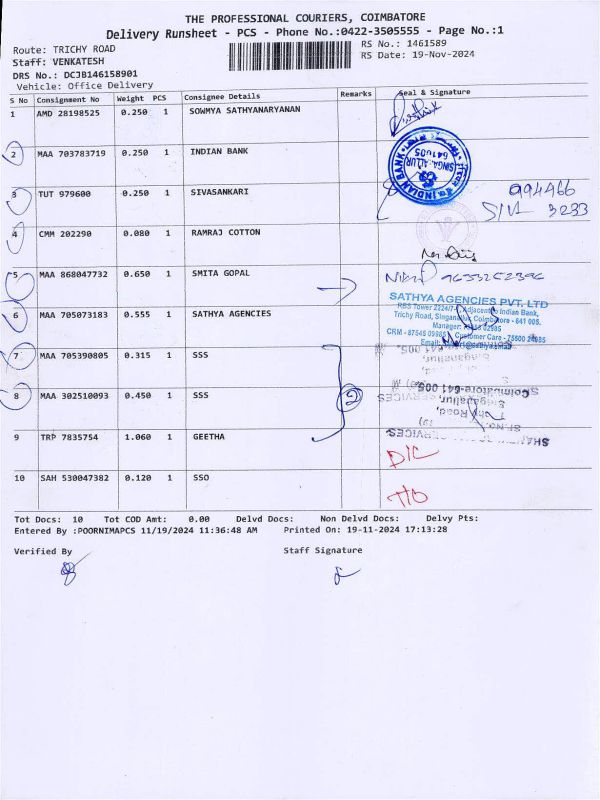 THE PROFESSIONAL COURIERS, COIMBATORE
Delivery Runsheet - PCS - Phone No.:0422-3505555 - Page No.:1
Route: TRICHY ROAD
RS No.: 1461589
Staff: VENKATESH
RS Date: 19-Nov-2024
DRS No.: DCJB146158901
Vehicle: Office Delivery
S No Consignment No Weight PCS Consignee Details Remarks Seal & Signature
1 AMD 28198525 0.250 1 SOWMYA SATHYANARYANAN
2 MAA 703783719 0.250 1 INDIAN BANK
INDIAN BANK
641005
3 TUT 979600 0.250 1 SIVASANKARI
994466
3233
4 CMM 202290 0.080 1 RAMRAJ COTTON
5 MAA 868047732 0.650 1 SMITA GOPAL
6 MAA 705073183 0.555 1 SATHYA AGENCIES
SATHYA AGENCIES PVT. LTD
RBS Tower Adjacent Indian Bank,
Trichy Road, Singanallur, Coimbatore - 641 005.
Manager:
Customer Care - 75600 24985
7 MAA 705390805 0.315 1 SSS
8 MAA 302510093 0.450 1 SSS
2
Coimbatore-641 005
Singanallur,
9 TRP 7835754 1.060 1 GEETHA
D/L
10 SAH 530047382 0.120 1 SSO
Tot Docs: 10 Tot COD Amt: 0.00 Delvd Docs: Non Delvd Docs: Delvy Pts:
Entered By :POORNIMAPCS 11/19/2024 11:36:48 AM Printed On: 19-11-2024 17:13:28
Verified By Staff Signature